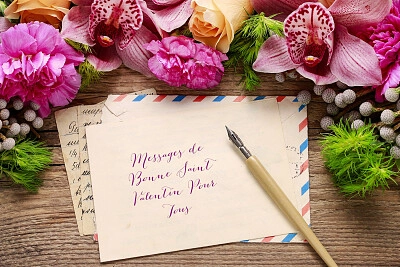 Messages de
Bonne Saint
Valentin Pour
Tous